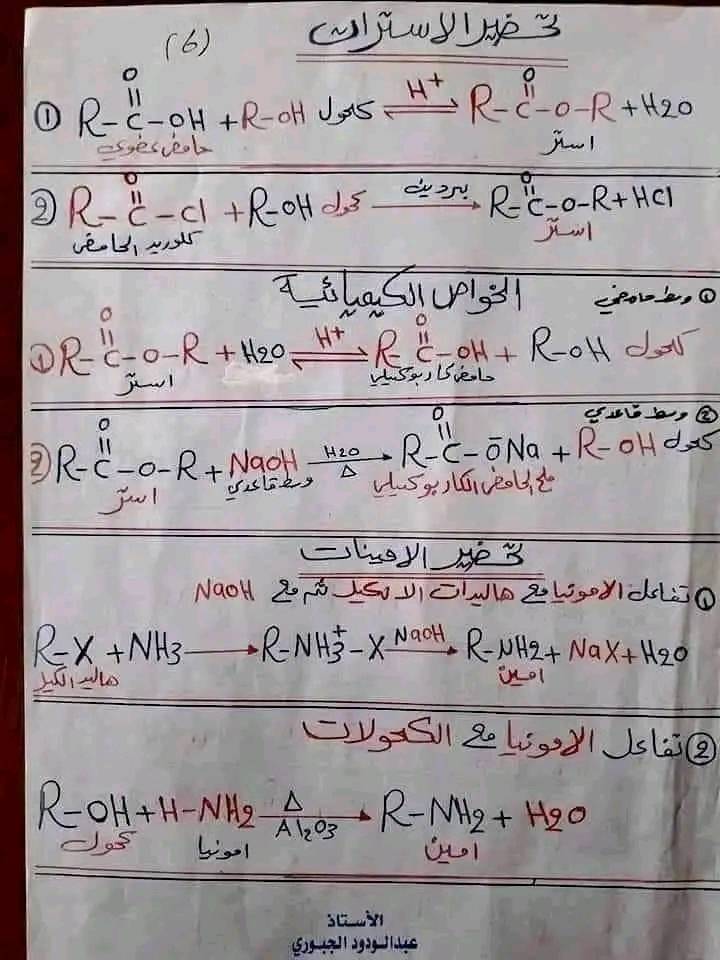 (6) تحضير الاسترات
① R-C(=O)-OH + R-OH كحول ⇌ H+ R-C(=O)-O-R + H2O
حامض عضوي استر
② R-C(=O)-Cl + R-OH كحول بيردين → R-C(=O)-O-R + HCl
كلوريد الحامض استر
الخواص الكيميائية
① وسط حامضي
① R-C(=O)-O-R + H2O ⇌ H+ R-C(=O)-OH + R-OH كحول
استر حامض كاربوكسيلي
② وسط قاعدي
② R-C(=O)-O-R + NaOH H2O → Δ R-C(=O)-ŌNa + R-OH كحول
استر وسط قاعدي ملح الحامض الكاربوكسيلي
تحضير الامينات
① تفاعل الامونيا مع هاليدات الالكيل ثم مع NaOH
R-X + NH3 → R-NH3+-X NaOH → R-NH2 + NaX + H2O
هاليد الكيل امين
② تفاعل الامونيا مع الكحولات
R-OH + H-NH2 Δ → Al2O3 R-NH2 + H2O
كحول امونيا امين
الأستاذ
عبدالودود الجبوري